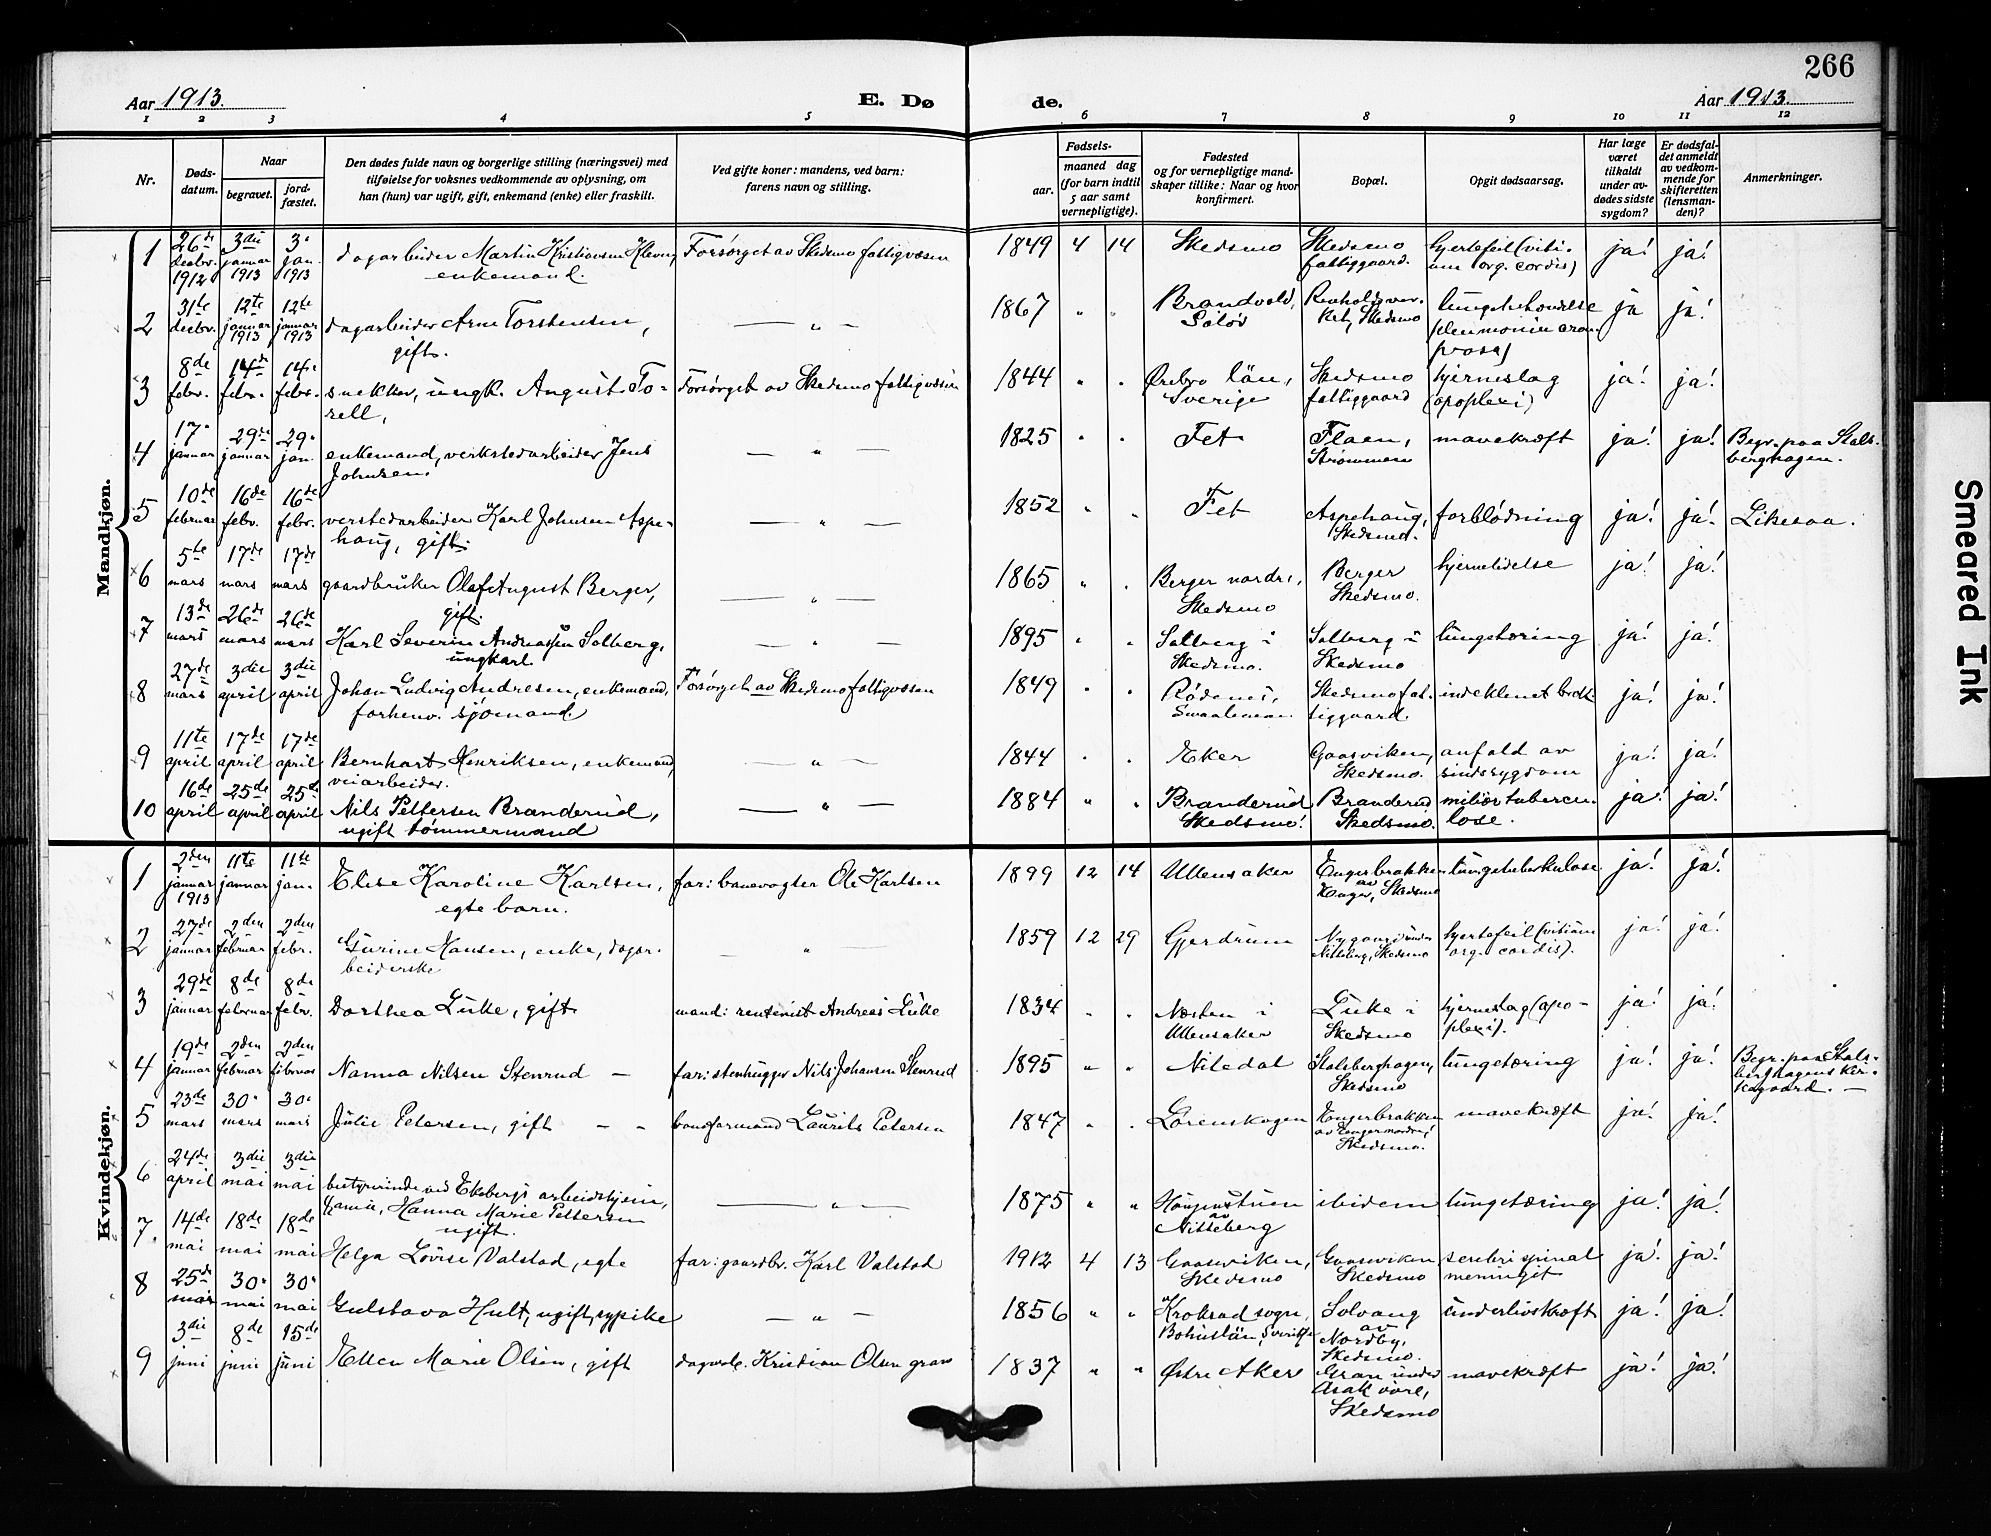 266
Aar 1913.
E. Dø
de.
Aar 1913.
1 2 3 4 5 6 7 8 9 10 11 12
Nr.
Døds-
datum.
Naar
begravet.
jord-
fæstet.
Den dødes fulde navn og borgerlige stilling (næringsvei) med
tilføielse for voksnes vedkommende av oplysning, om
han (hun) var ugift, gift, enkemand (enke) eller fraskilt.
Ved gifte koner: mandens, ved barn:
farens navn og stilling.
Fødsels-
aar.
maaned dag
(for barn indtil
5 aar samt
vernepligtige).
Fødested
og for vernepligtige mand-
skaper tillike: Naar og hvor
konfirmert.
Bopæl.
Opgit dødsaarsag.
Har læge
været
tilkaldt
under av-
dødes sidste
sygdom?
Er dødsfal-
det anmeldt
av vedkom-
mende for
skifteretten
(lensman-
den)?
Anmerkninger.
Mandkjøn.
1 26de desbr. 1912 3die januar 1913 3. jan. 1913 dagarbeider Martin Kristiansen enkemand. Forsørget av Skedsmo fattigvæsen 1849 4 14 Skedsmo Skedsmo fattiggaard. hjertefeil (viti-
um org. cordis) ja! ja!
2 31te desbr. 12te januar 1913 12te januar 1913 dagarbeider Arne Torstensen,
gift. — " — 1867 " " Brandvold,
Solør Skedsmo ja ja!
3 8de febr. 14de febr. 14de febr. snekker, ungk. August To-
rell, Forsørget av Skedsmo fattigvæsen 1844 " " Ørebro län,
Sverige Skedsmo
fattiggaard hjerneslag
(apoplexi) ja! ja!
4 17. januar 29de januar 29. jan. enkemand, verkstedarbeider Jens
Johnsen. — " — 1825 " " Fet Flaen,
Strømmen mavekræft ja! ja! Begr. paa Stals-
berghagen.
5 10de februar 16de febr. 16de febr. verstedarbeider Karl Johnsen Aspe-
haug, gift. — " — 1852 " " Fet Aspehaug,
Skedsmo. forblødning ja! ja! Likesaa.
6 5te mars 17de mars 17de mars gaardbruker Olaf August Berger,
gift. — " — 1865 " " Berger nordre,
Skedsmo Berger
Skedsmo. hjernelidelse ja! ja!
7 13de mars 26de mars 26de mars Karl Severin Andreassen Solberg,
ungkarl — " — 1895 " " Solberg i
Skedsmo. Solberg i
Skedsmo lungetæring ja! ja!
8 27de mars 3die april 3die april Johan Ludvig Andresen, enkemand,
forhenv. sjømand. Forsørget av Skedsmo fattigvæsen 1849 " " Rødenes,
Smaalenene Skedsmo fat-
tiggaard. indeklemt brok ja! ja!
9 11te april 17de april 17de april Bernhart Henriksen, enkemand,
veiarbeider. — " — 1844 " " Eker Gaasviken,
Skedsmo. anfald av
sindssygdom ja! ja!
10 16de april 25de april 25de april Nils Pettersen Branderud,
ugift tømmermand — " — 1884 " " Branderud
Skedsmo. Branderud
Skedsmo. miliærtubercu-
lose. ja! ja!
Kvindekjøn.
1 2den januar 1913 11te januar 11te jan. Elise Karoline Karlsen,
egte barn. far: banevogter Ole Karlsen 1899 12 14 Ullensaker Engerbrakken
av
Skedsmo lungetuberkulose ja! ja!
2 27de januar 2den februar 2den febr. Gurine Hansen, enke, dagar-
beiderske " 1859 12 29 Gjerdrum Nygaard under
Nitteberg, Skedsmo hjertefeil (vitium
org. cordis). ja! ja!
3 29de januar 8de februar 8de febr. Dorthea Luke, gift mand: rentenist Andreas Luke 1834 " " Nesten i
Ullensaker Luke i
Skedsmo hjerneslag (apo-
plexi). ja! ja!
4 19de januar 2den februar 2den februar Nanna Nilsen Stenrud — far: stenhugger Nils Johansen Stenrud 1895 " " Nitedal Stalsberghagen,
Skedsmo lungetæring ja! ja! Begr. paa Stals-
berghagens kir-
kegaard. —
5 23de mars 30. mars 30. mars Julie Petersen, gift — — baneformand Laurits Petersen 1847 " " Lørenskogen Engerbrakken
av
Skedsmo. mavekræft ja! ja!
6 24de april 3die mai 3die mai bestyrerinde ved Ekebergs arbeidshjem,
Hanna Marie Pettersen
ugift. — " — 1875 " " Haugenstuen
av
Nitteberg ibidem lungetæring ja! ja!
7 14de mai 18de mai 18de mai Helga Lovise Valstad, egte far: gaardbr. Karl Valstad 1912 4 13 Gaasviken,
Skedsmo Gaasviken
Skedsmo serebrispinal
meninget ja! ja!
8 25de mai 30. mai 30. mai Gustava Hult, ugift, sypike — " — 1856 " " Krokstad sogn,
Bohuslän, Sverige Solvang
av
Nordby,
Skedsmo. underlivskræft ja! ja!
9 3die juni 8de juni 15de juni Ellen Marie Olsen, gift dagarb. Kristian Olsen gran 1837 " " Østre Aker Gran under
Asak øvre,
Skedsmo mavekræft ja! ja!
Smeared Ink